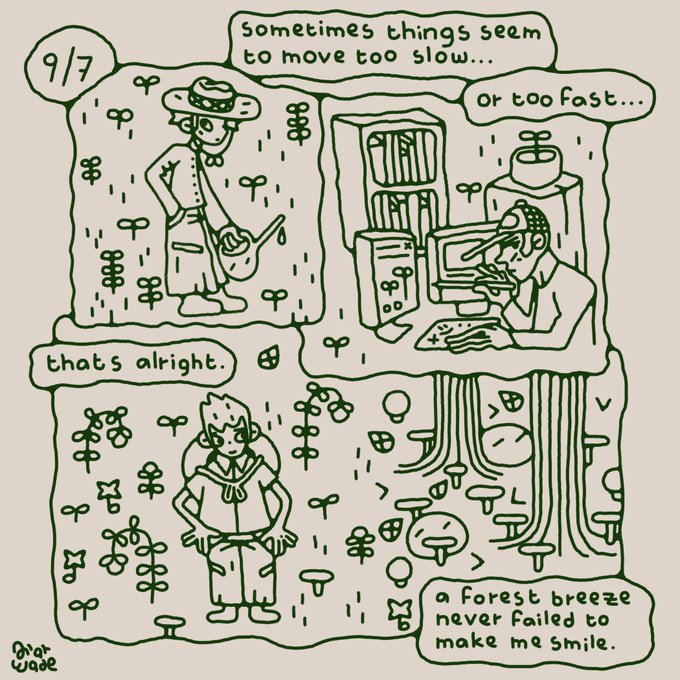 9/7
sometimes things seem
to move too slow...
or too fast...
thats alright.
a forest breeze
never failed to
make me smile.